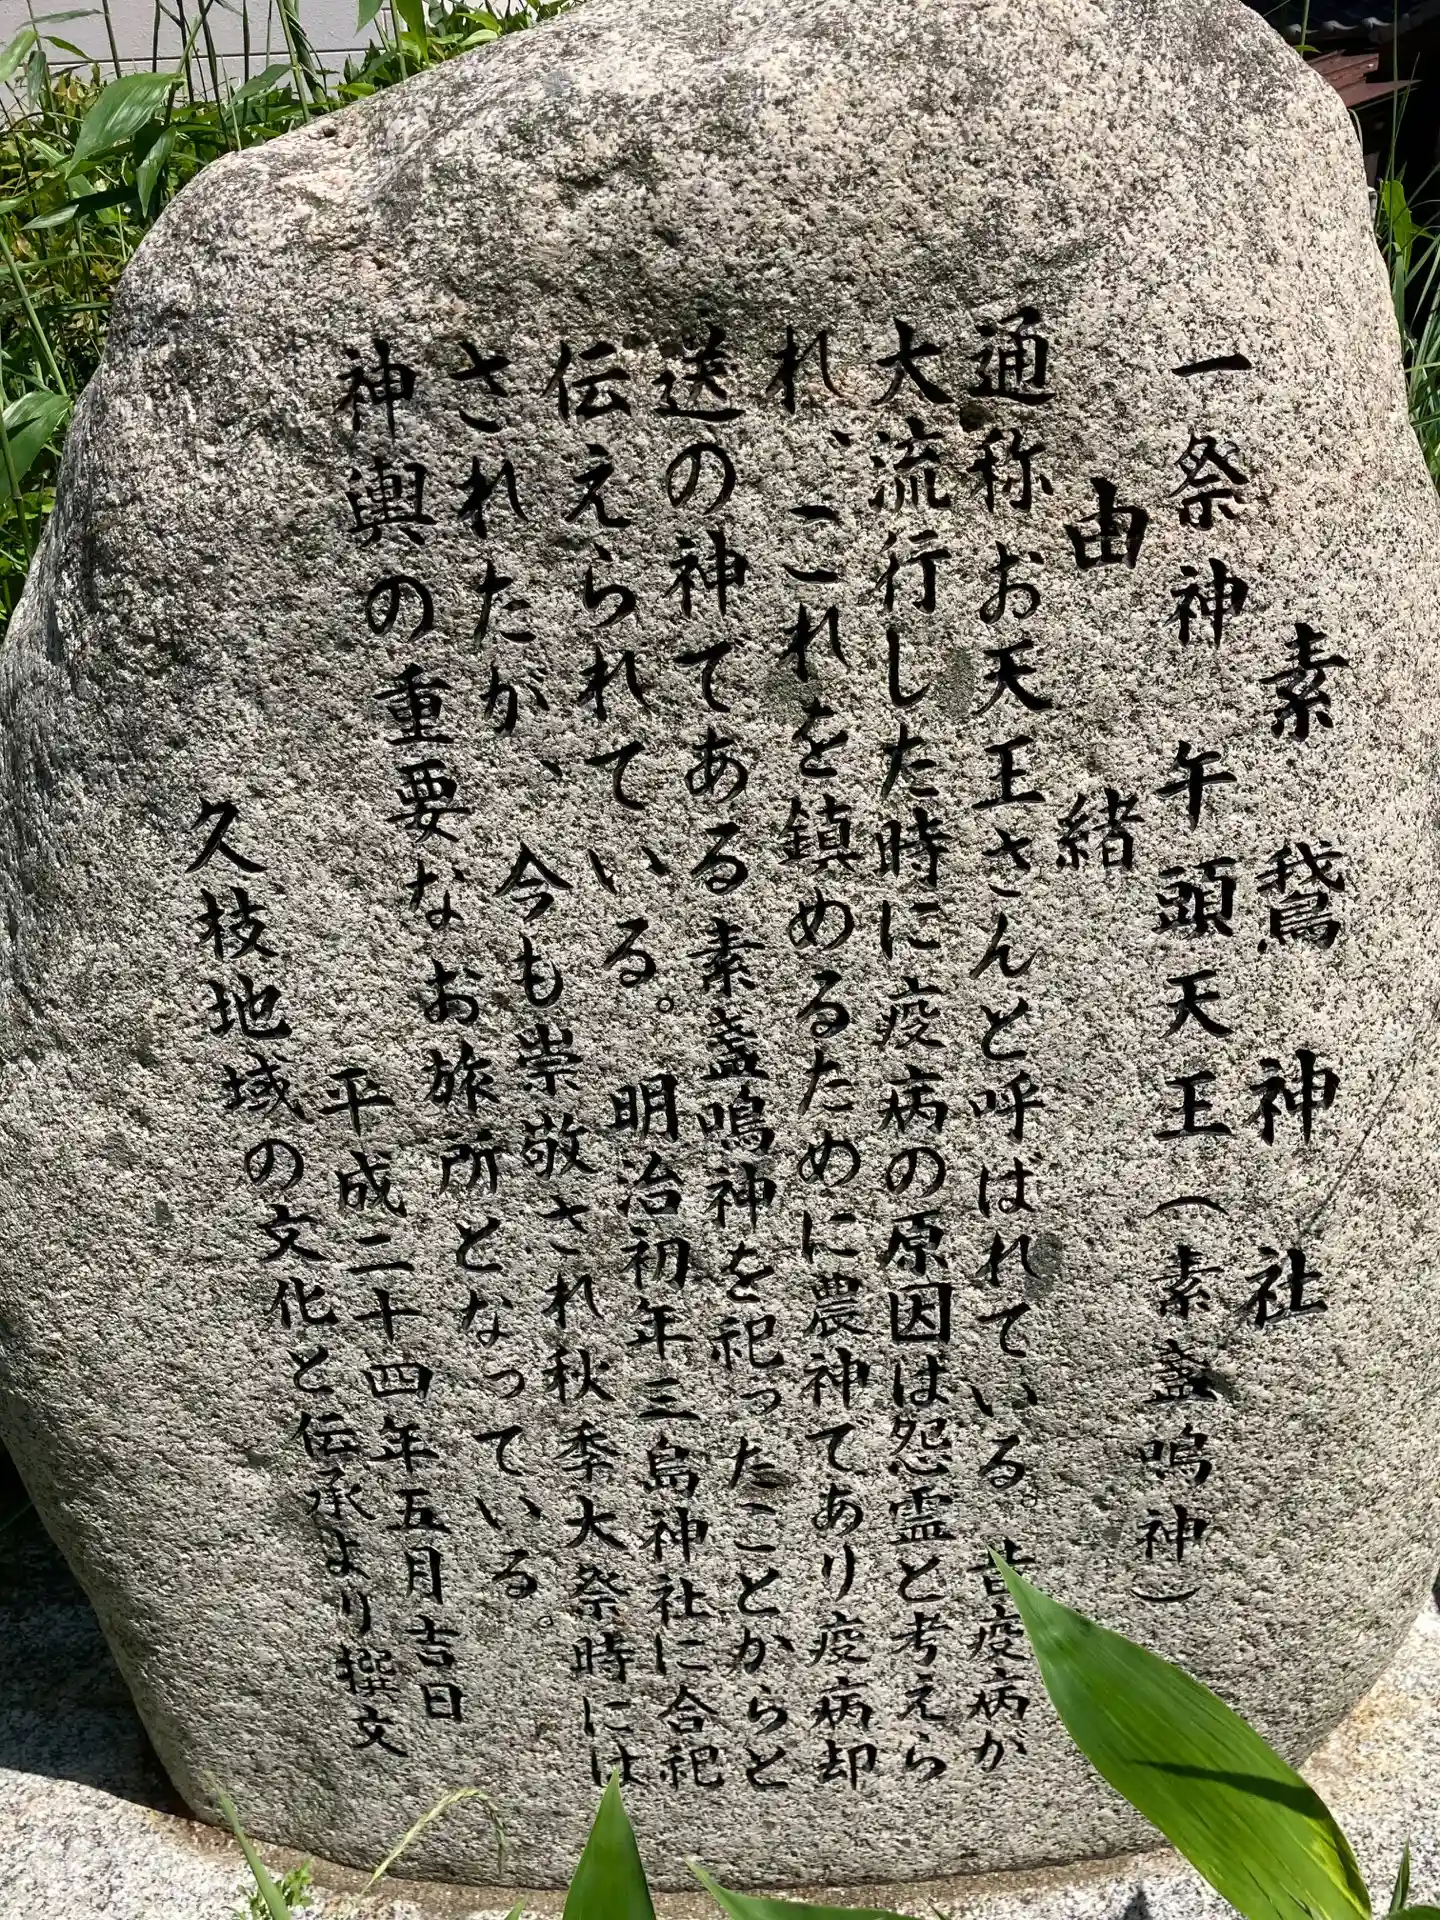 素鵞神社
一祭神 午頭天王(素盞嗚神)
由緒
通称お天王さんと呼ばれている。昔疫病が
大流行した時に疫病の原因は怨霊と考えら
れ、これを鎮めるために農神てあり疫病却
送の神てある素盞鳴神を祀ったことからと
伝えられている。明治初年三島神社に合祀
されたが、今も崇敬され秋季大祭時には
神輿の重要なお旅所となっている。
平成二十四年五月吉日
久枝地域の文化と伝承より撰文